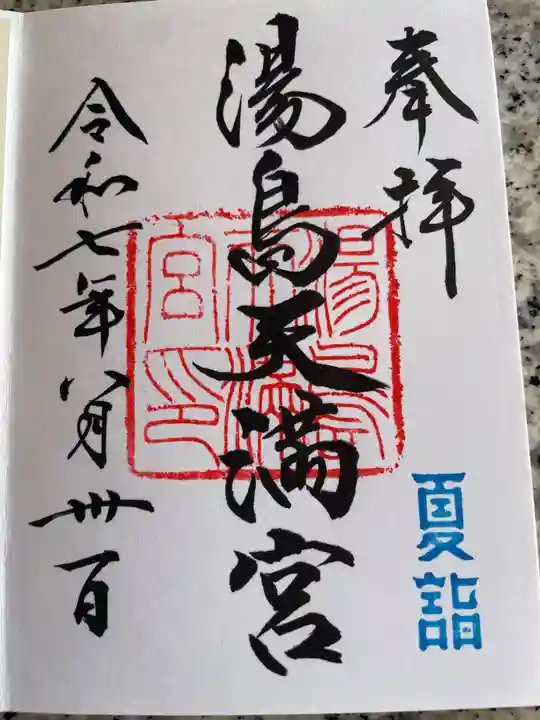 奉拝
夏詣
湯島天満宮
令和七年八月卅一日